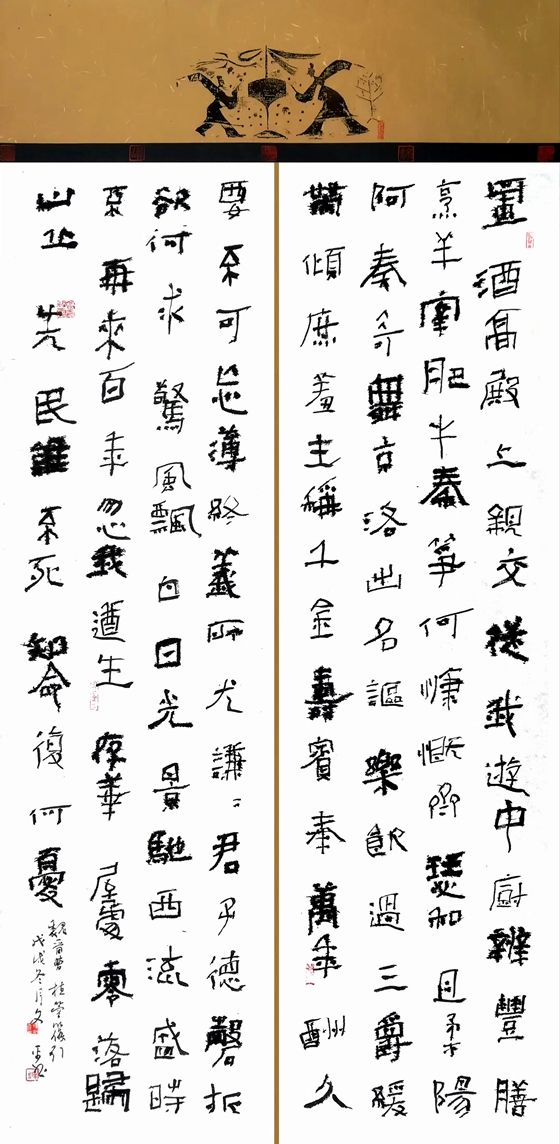 置酒高殿上親交從我遊中廚辦豐膳
烹羊宰肥牛秦箏何慷慨齊瑟和且柔陽
阿奏奇舞京洛出名謳樂飲過三爵緩
帶傾庶羞主稱千金壽賓奉萬年酬久
要不可忘薄終義所尤謙〻君子德磬折
欲何求驚風飄白日光景馳西流盛時
不再來百年忽我遒生存華屋處零落歸
山丘先民誰不死知命復何憂
魏晉曹植箜篌引
戊戌冬月文